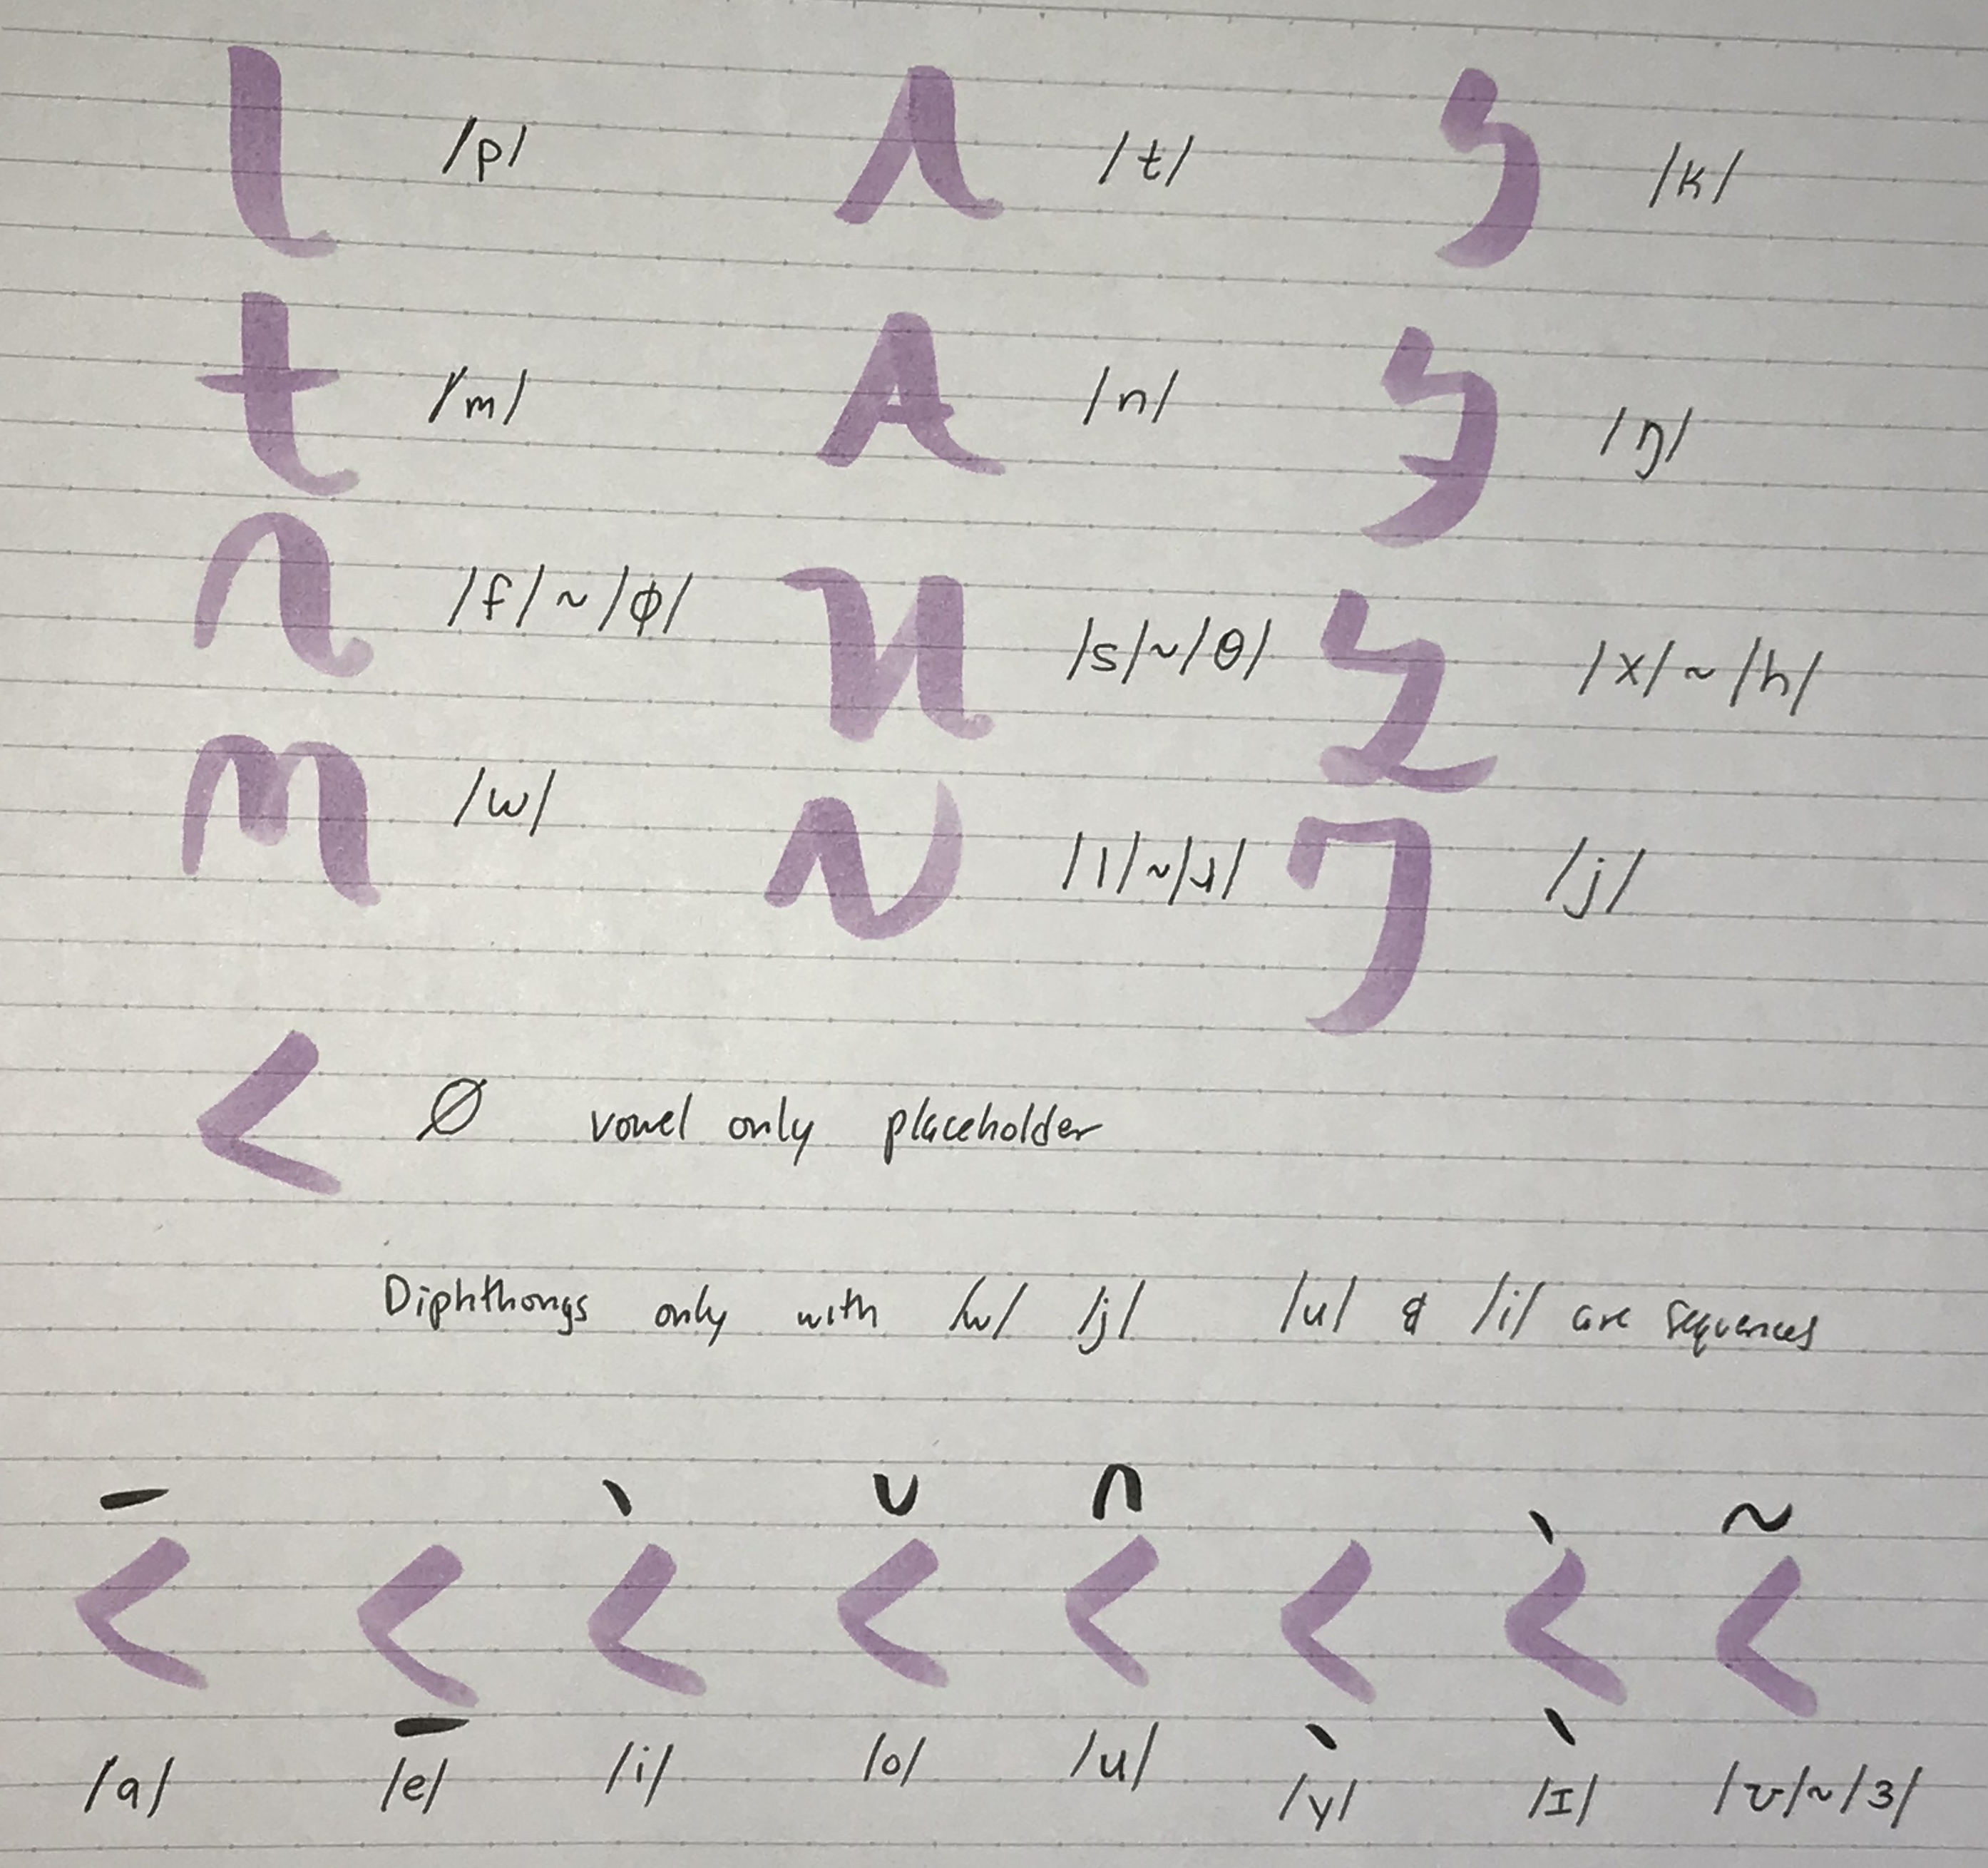 /p/ /t/ /k/
/m/ /n/ /ŋ/
/f/~/ɸ/ /s/~/θ/ /x/~/h/
/w/ /l/~/ɹ/ /j/
∅ vowel only placeholder
Diphthongs only with /w/ /j/ /u/ & /i/ are sequences
/a/ /e/ /i/ /o/ /u/ /y/ /ɪ/ /ʊ/~/ɜ/